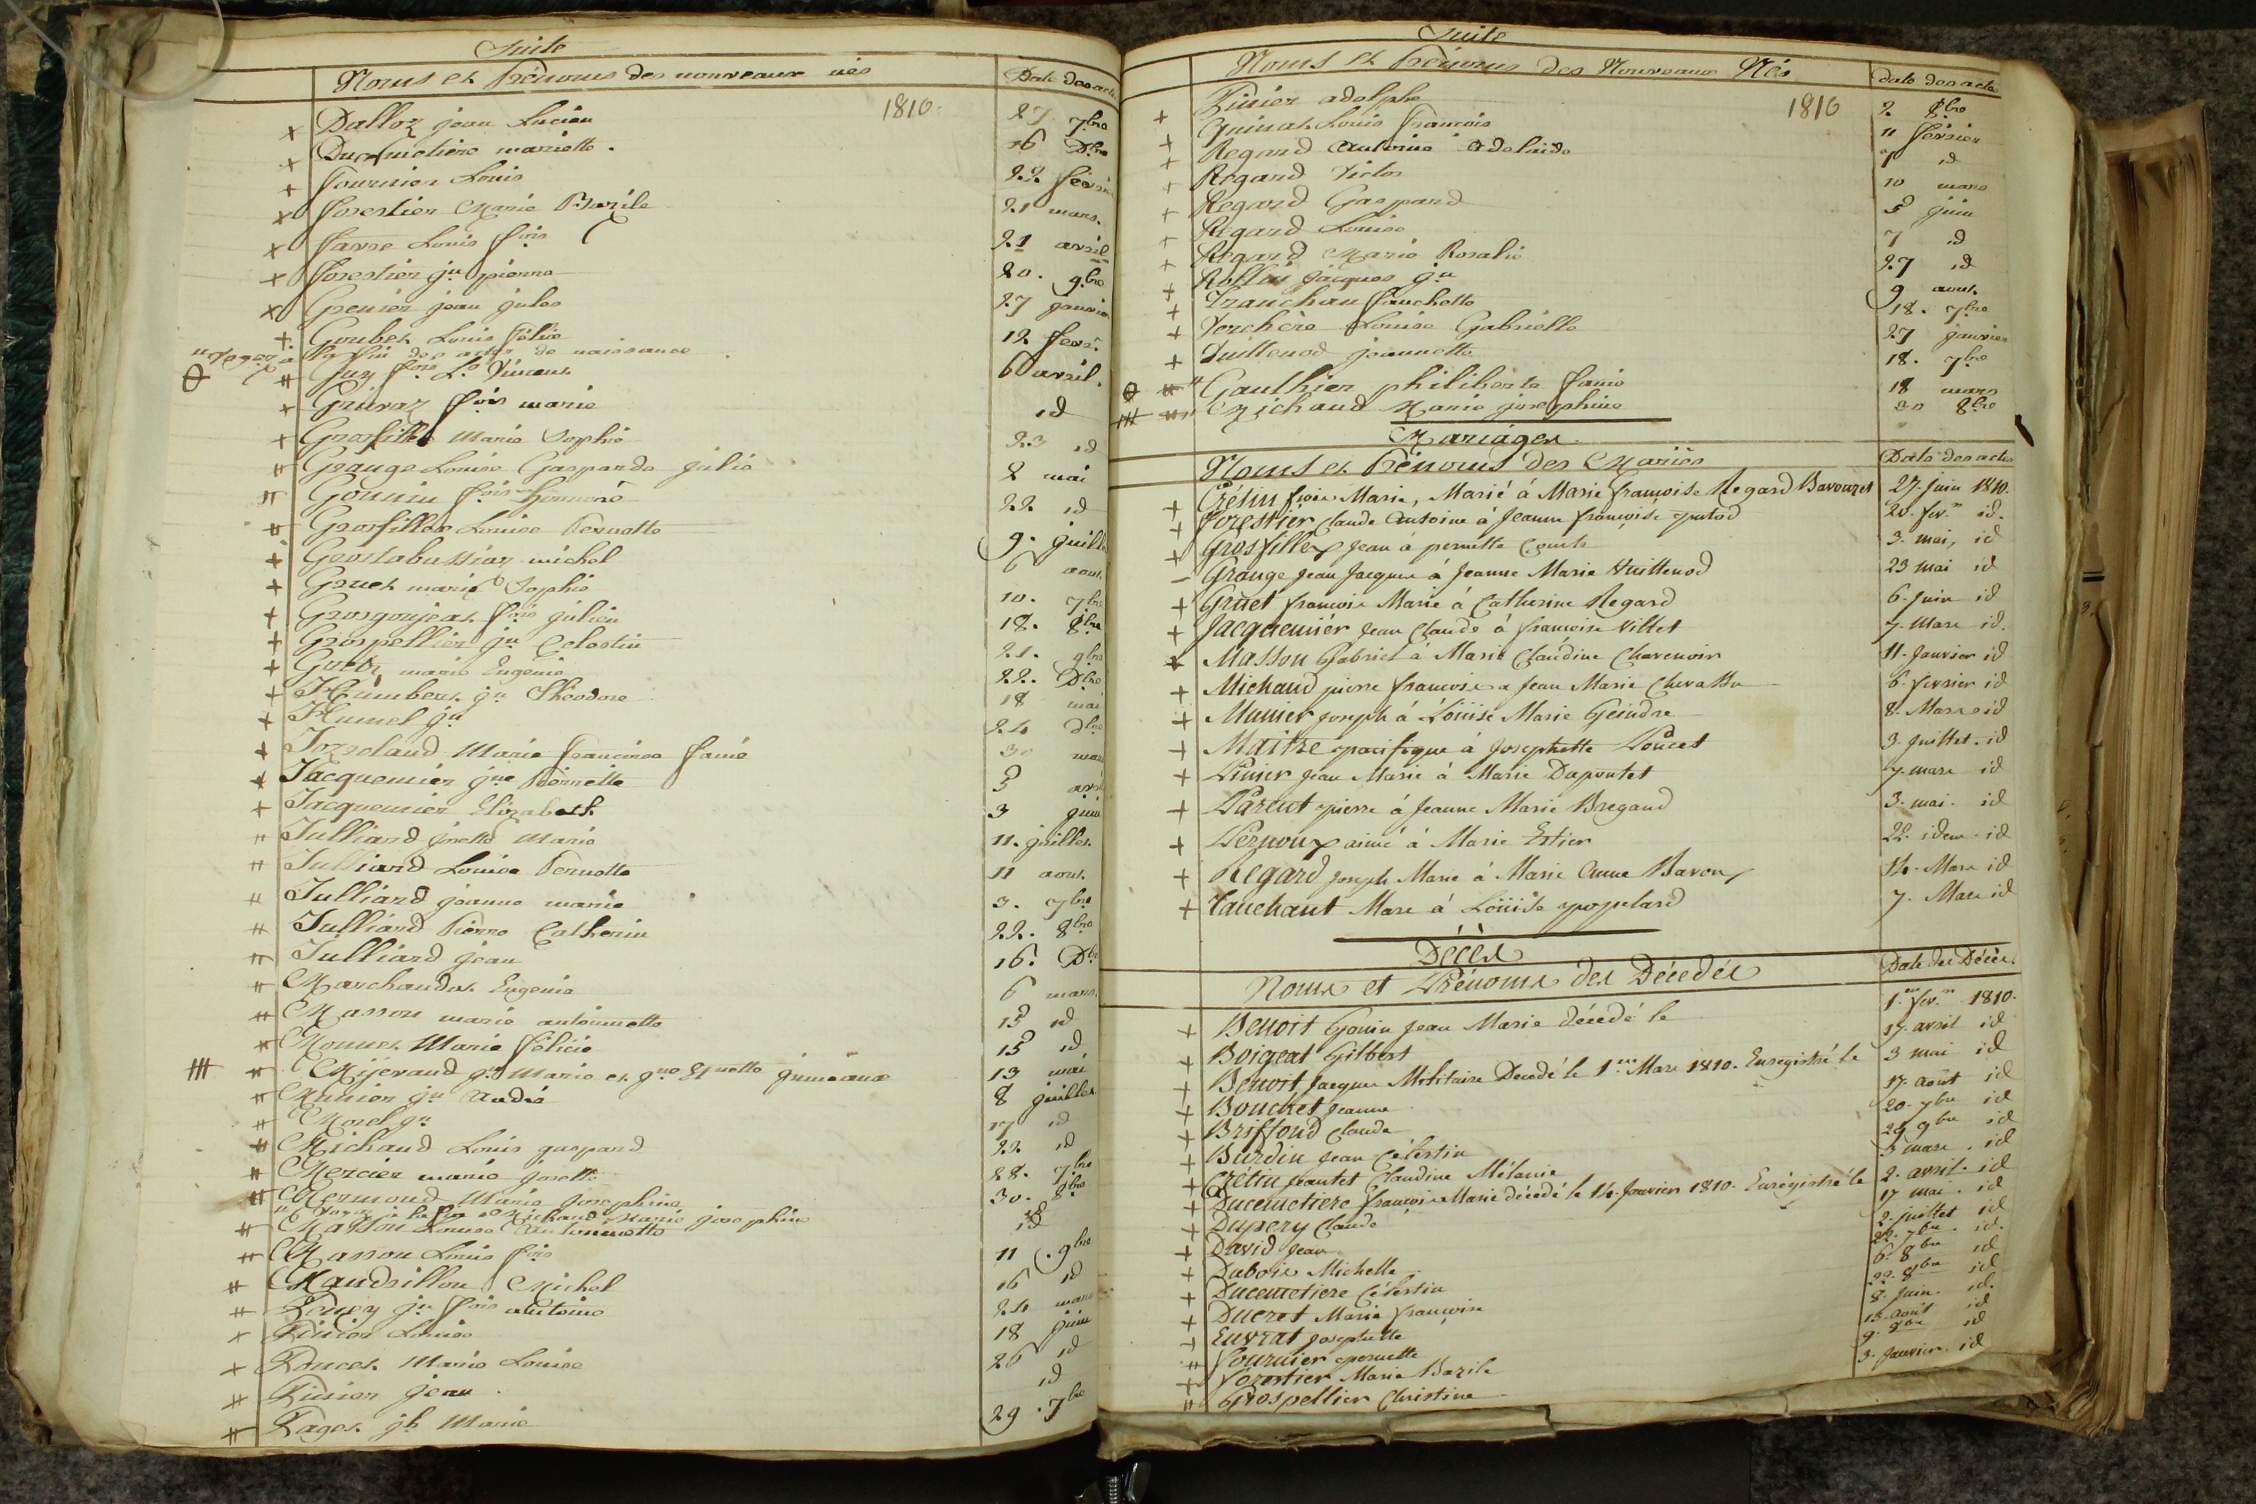 Suite
Noms et Prénoms des nouveaux nés
Date des acte
1810.
Dalloz jean Lucien 27 7bre
Ducimetiere mariette. 16 Dbre
fournier Louis 22 fevri
forestier Marie Bazile 21 mars.
favre Louis fois 21 avril
forestier jn pierre 20. 9bre
Grenier jean jules 27 janvier
Goubet Louis félise 12 fevr.
à la fin des actes de naissance
Guy fois Ls Vincent 6 avril.
Grivaz fois marie id
Grosfillex Marie Sophie 23 id
Grange Louise Gasparde julie 2 mai
Gonnin fois honnoré 22 id
Grosfillex Louise Pernette 9. juill
Grostabussiat michel 6 aout.
Gruet marie Sophie 10. 7bre
Grosgoujeat fois julien 18. 8bre
Grospellier jn Celestin 21. 9bre
marie Eugenie 22. Dbre
Humbert jn Théodore 18 mai
Humel jn 24 Dbre
Jozseland Marie francinee fanie 30 mar
Jacquemier jne Pernette 5 avri
Jacquemier Elizabeth 3 juin
Julliard josette Marie 11. juillet.
Julliard Louise Pernette 11 aout.
Julliard jeanne marie 3. 7bre
Julliard Pierre Catherin 22. 8bre
Julliard jean 16. Dbr
Marchandet Eugenie 6 mars.
Masson marie antoinette 15 id
Monnet Marie félicie 15 id
Mijeraud jn Marie et jne gumeaux 13 mai
Munier jn Audré 8 juillet
Morel jn 17 id
Michaud Louis guspard 22 id
Mercier marie josette 28. 7bre
Mermond Marie josephine 30. 8bre
à la fin Michaud Marie josephine
Masson Louise Antoinette id
Masson Louis fois 11. 9bre
Mandrillon Michel 16 id
jn fois antoine 24 mars
Pinier Louise 18 juin
Poncet Marie Louise 26 id
Pinier jean. id
Paget jh Marie 29. 7bre
Suite
Noms et Prénoms des Nouveaux Nés
date des acte
1810
Pinier adolphe 2 8bre
Louis francois 11 fevrier
Regard Antonie adelaide 7 id
Regard Victor 10 mars
Regard Gaspard 5 juin
Regard Louise 7 id
Regard Marie Rosalie 27 id
Rollet jacques jn 9 aout.
Tranchau fanchette 18. 7bre
Verchère Louise Gabrielle 27 janvier
Vuillenod jeannette 18. 7bre
Gaulthier philiberte fanie 18 mars
Michaud Marie josephine 30 8bre
Mariages
Noms et Prénoms des Mariés
Date des acte
Crétin fois Marie, Marié à Marie françoise Regard Bavouzet 27. juin 1810.
Forestier Claude Antoine à Jeanne françoise putod 20. fevr. id.
Grosfillex Jean à pernette Comte 3. mai, id
Grange Jean Jacques à Jeanne Marie Vuillenod 23 mai id
Gruet françois Marie à Catherine Regard 6. Juin id
Jacquemier Jean Claude à françoise Villet 7. Mars id.
Masson Gabriel à Marie Claudine Charnoir 11. Janvier id
Michaud pierre francois a Jean Marie Chevassu 6. fevrier id
Munier joseph à Louise Marie Geindre 8. Mars id
Maitre pacifique à Josephette Poncet 3. Juillet. id
Pinier Jean Marie à Marie Dupontet 7. mars id
Parent pierre à Jeanne Marie Bregand 3. mai. id
Pernoux aimé à Marie Estier 22. idem. id
Regard Joseph Marie à Marie Anne Bavoux 14. Mars id
Tanchant Marc à Louise popelard 7. Mars id
Décès
Noms et Prénoms des Décédés
Date des Décès.
Benoit Gonin Jean Marie décédé le 1.er fev.er 1810.
Boigeat Gilbert 17. avril id
Benoit Jacques Militaire Décédé le 1er Mars 1810. Enregistré le 3 mai id
Bouchet Jeanne 17. août id
Briffoud Claude 20. 7bre id
Burdin Jean Célestin 29 9bre id
Crétin frantet Claudine Mélanie 3 mars. id
Ducimetiere françois Marie décédé le 14. Janvier 1810. Enregistré le 2. avril. id
Dupery Claude 17 mai. id
David Jean 2. juillet id
Dubois Michelle 22. 7bre. id.
Ducimetiere Célestin 6. 8bre id
Ducret Marie françoise 22. 8bre id
Euvrat Josephette 8. juin. id.
Fournier pernette 13. août id
Forestier Marie Bazile 9. 9bre id
Grospellier Christine 3. Janvier. id